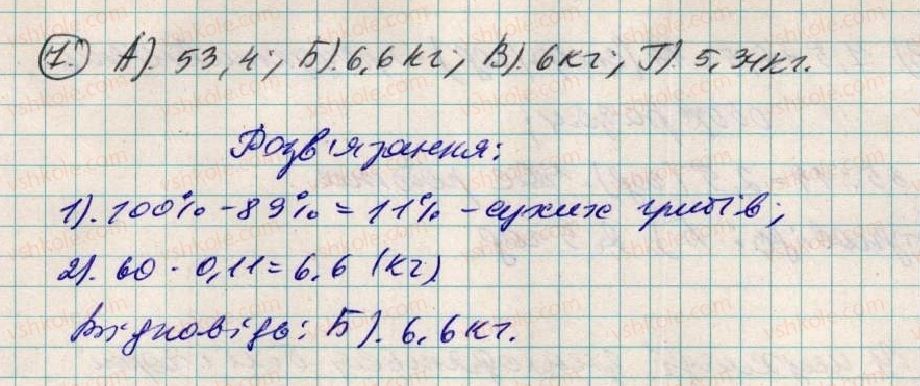 7. А). 53,4; Б). 6,6 кг; В). 6 кг; Г). 5,34 кг.
Розв'язання:
1). 100% - 89% = 11% - сухих грибів;
2). 60 · 0,11 = 6,6 (кг)
Відповідь: Б). 6,6 кг.